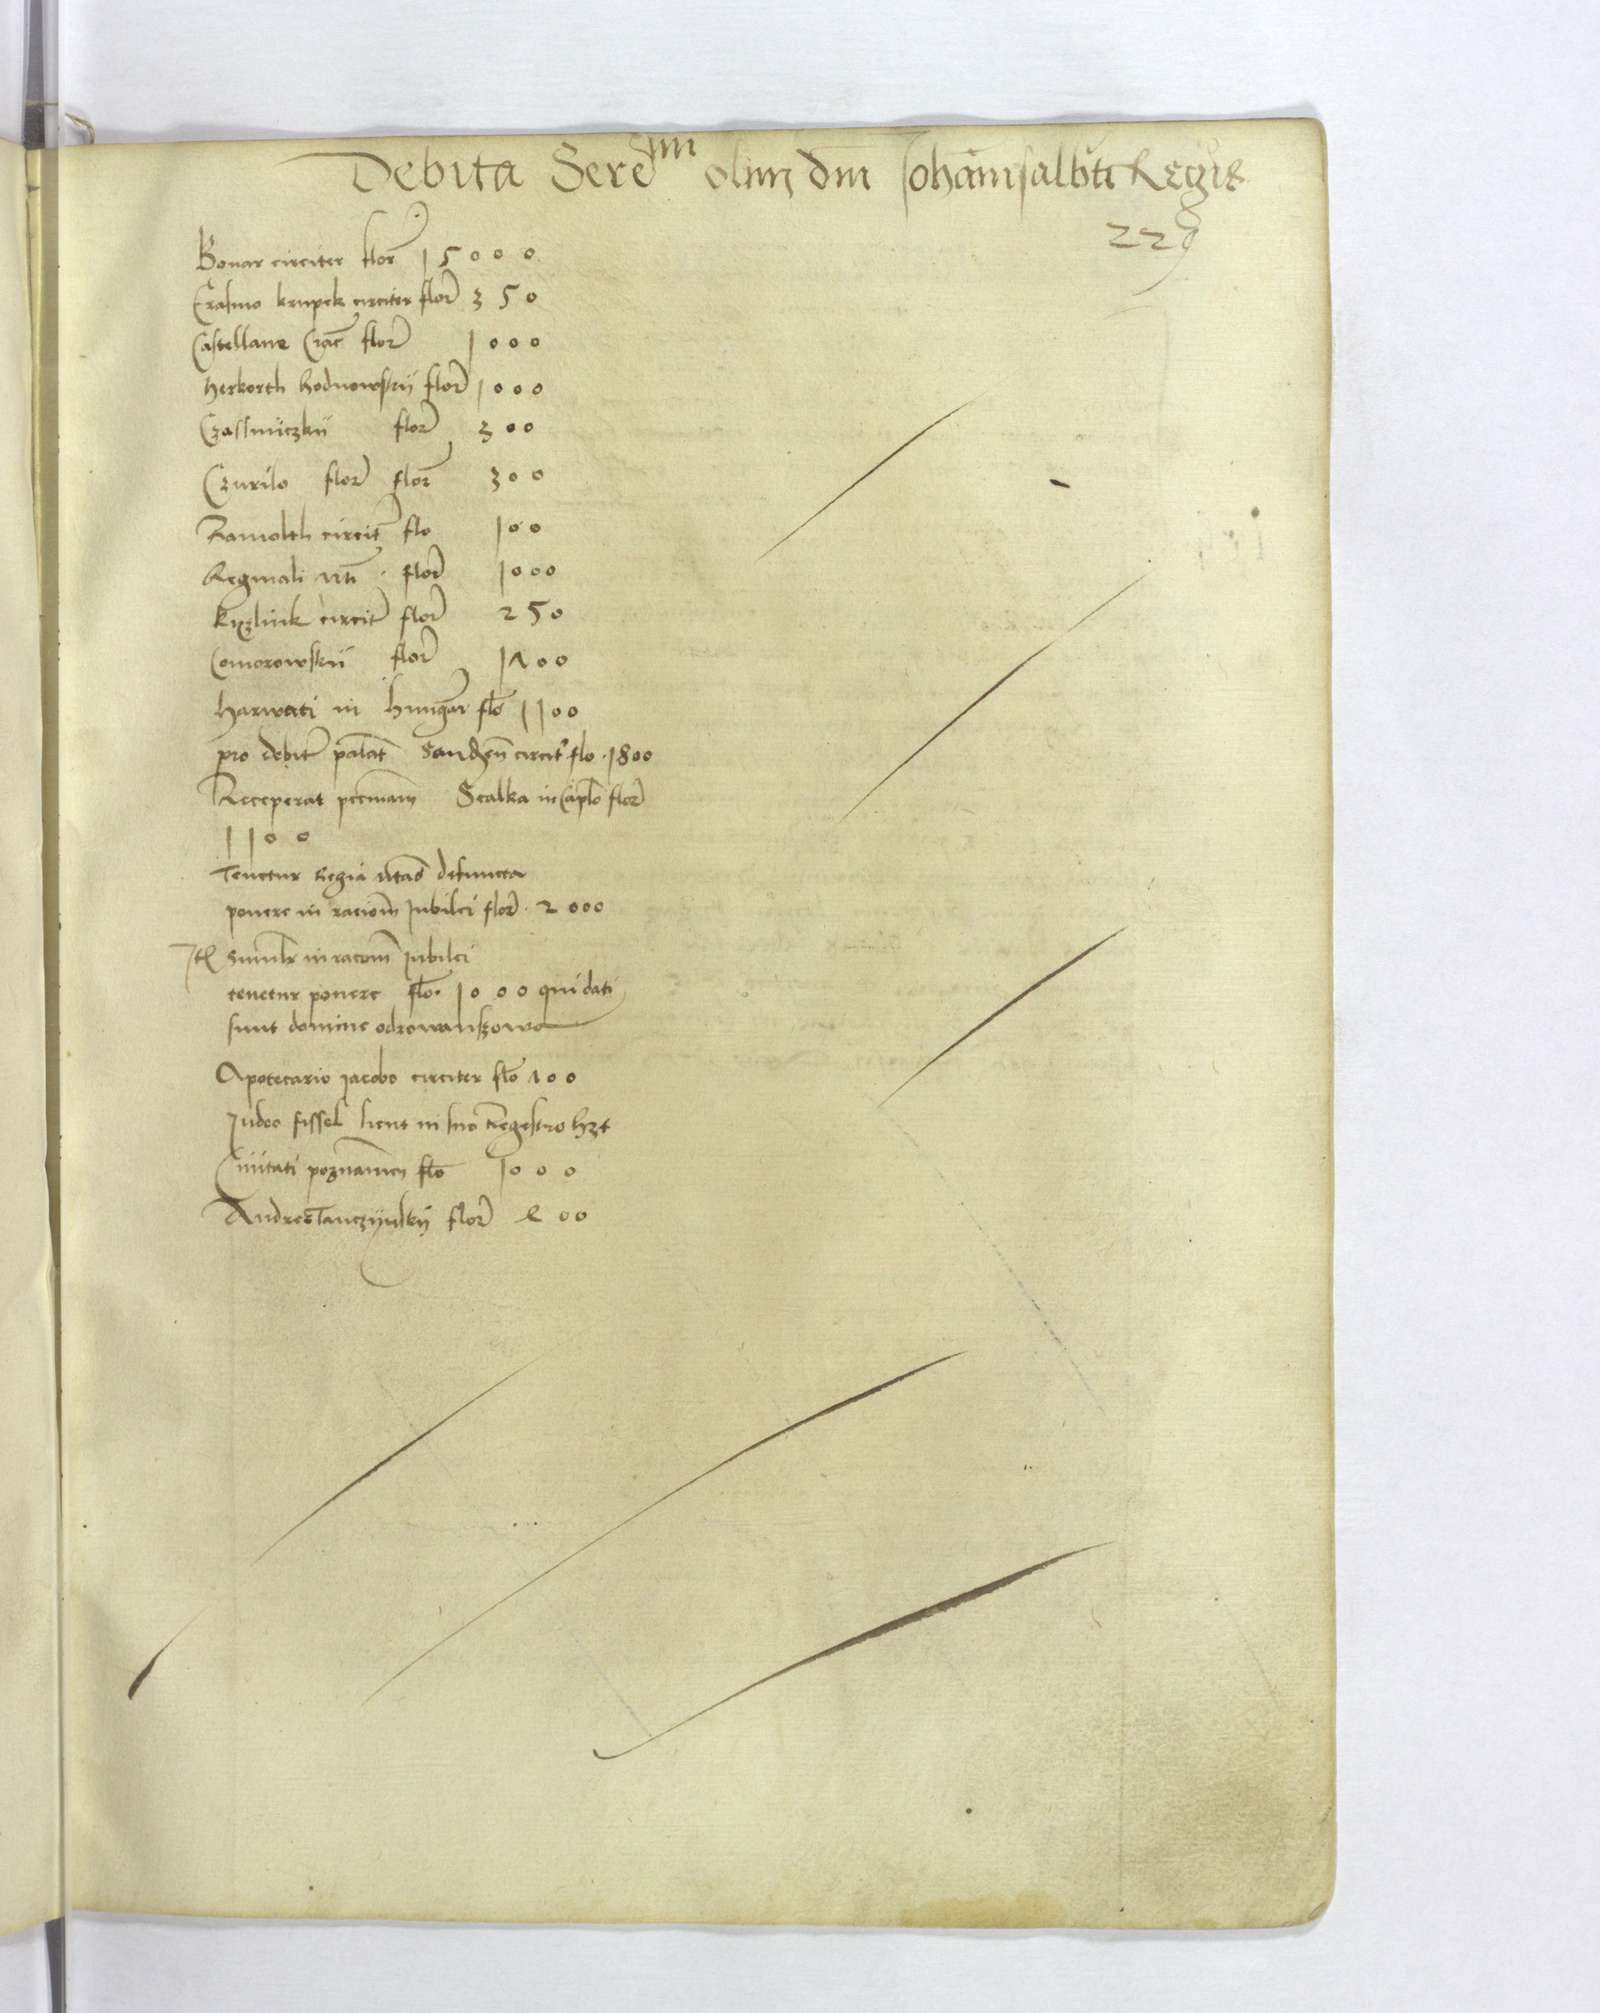 Debita Sere^mi olim dm̄ Johānisalb̄ti Regis
229
Bonar circiter flor̄ 15000
Erasmo krupek circiter flor̄ 350
Castellane Crac̄ flor̄ 1000
herborth hodnowskij flor̄ 1000
Czassniczkij flor̄ 300
Czurilo flor̄ flor̄ 300
Ramolth circit̄ flo 100
Reginali flor̄ 1000
kyzlink circit̄ flor̄ 250
Comorowskij flor̄ 1400
harwati in hungar̄ flō 1100
pro debit̄ palat̄ Sandzn̄ circit̄ flo 1800
Receperat pecuniam̄ Scalka in flor̄
1100
Tenetur Regia defuncta
ponere in racionm̄ Jubilei flor̄ 2000
It̄ simlr̄ in racom̄ Jubilei
tenetur ponere flō 1000 qui dati
sunt domine odrowanszowa
Apotecario jacobo circiter flō 100
Judeo fissel sicut in suo Regestro hzt
Civitati poznamen̄ flō 1000
Andree Tanczijnskij flor̄ 00